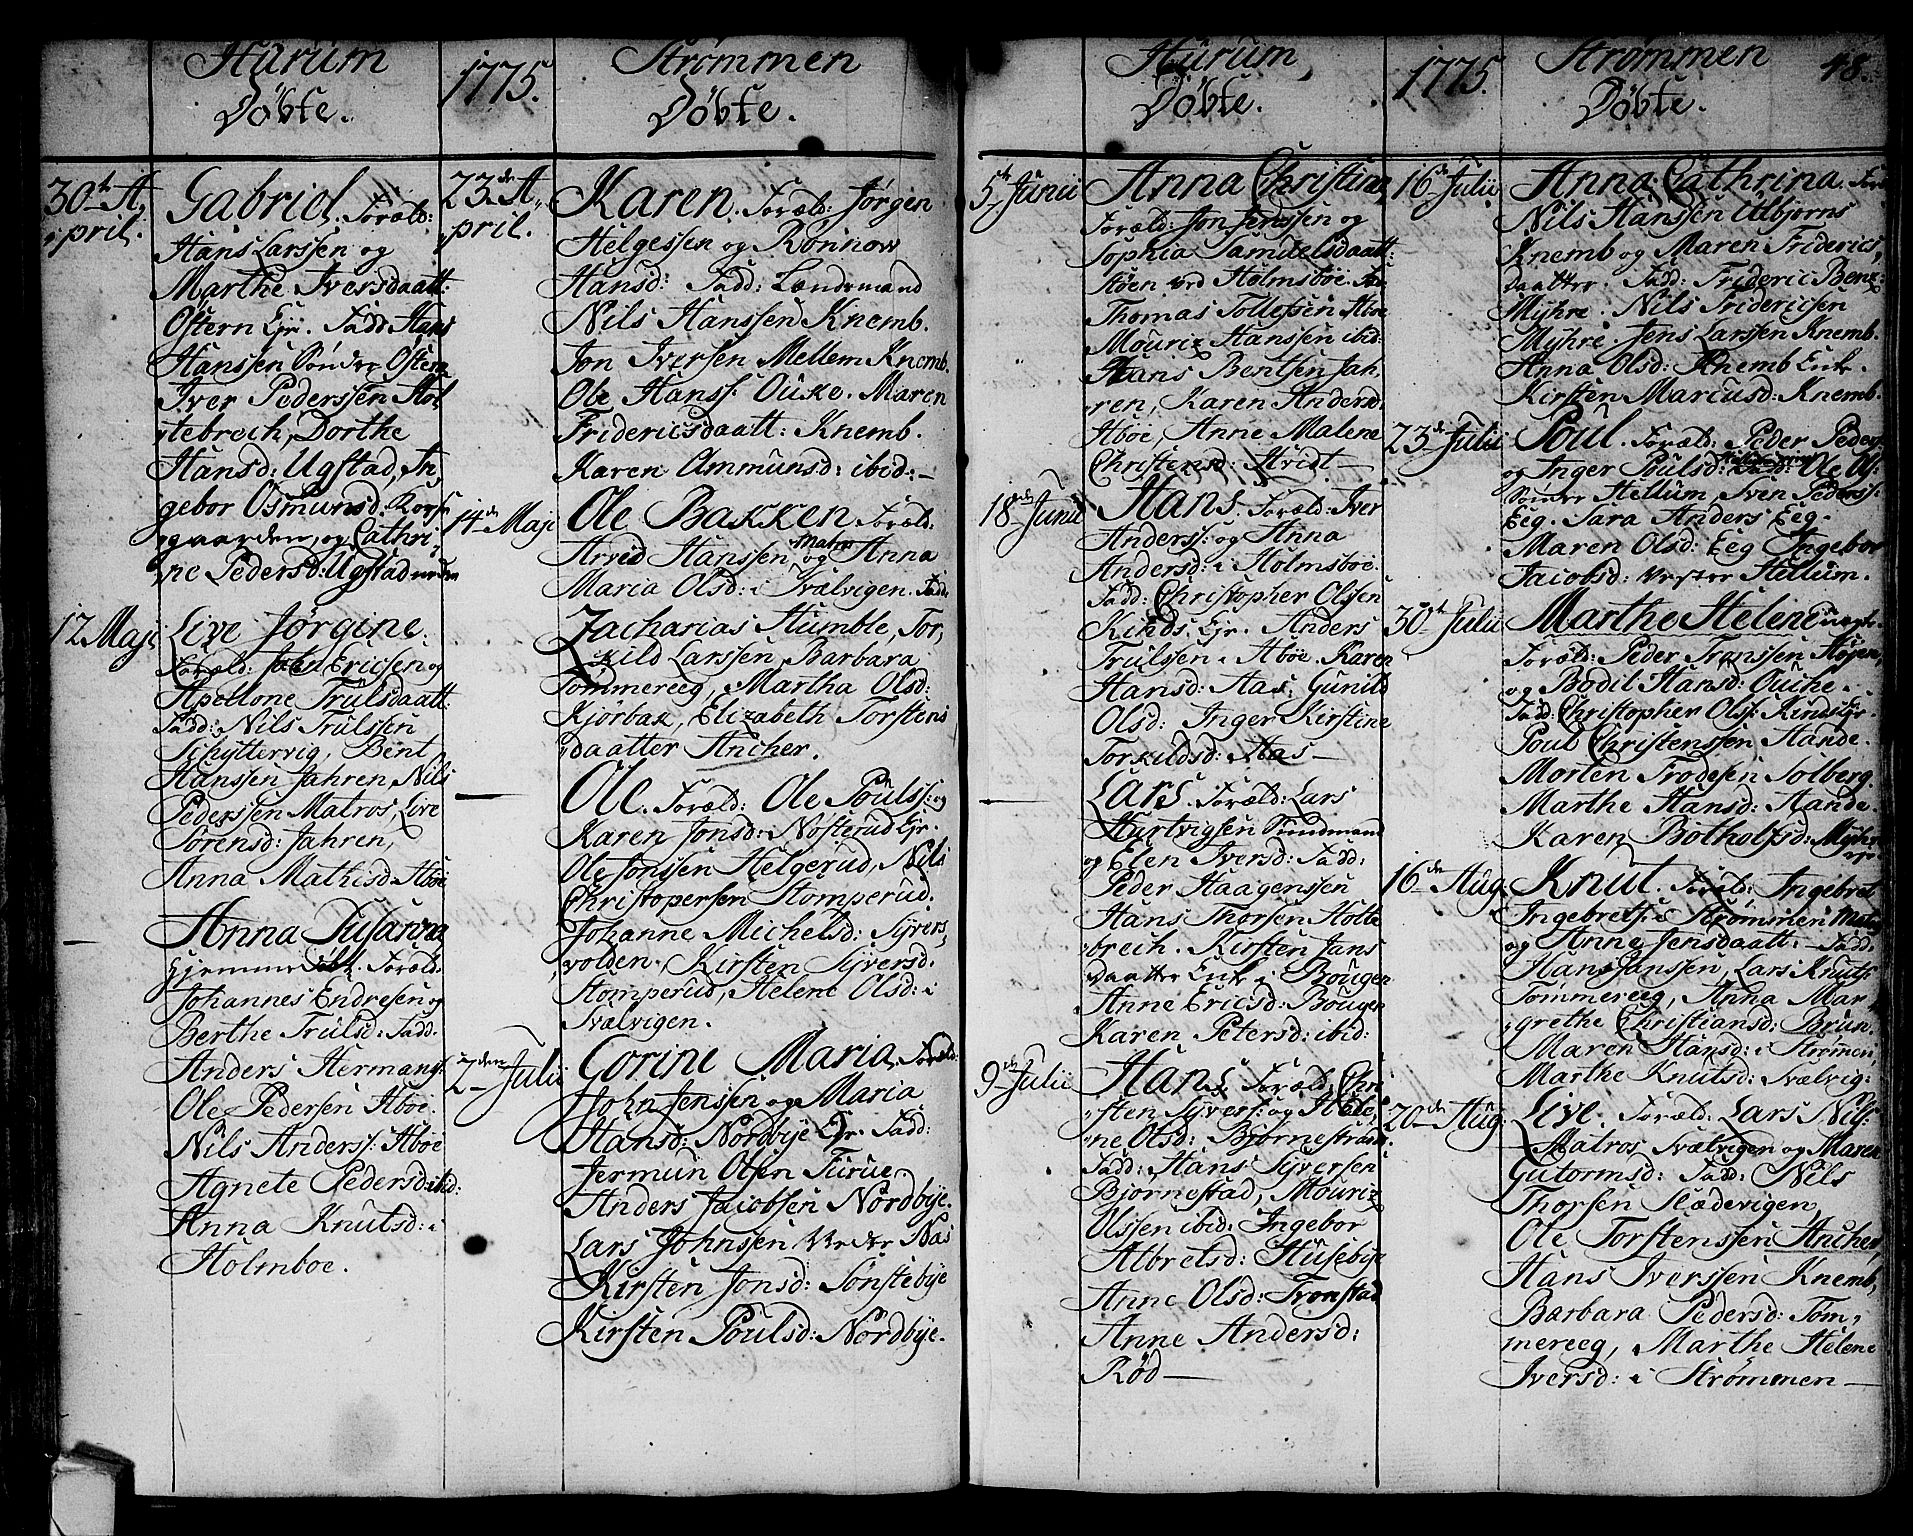 Hurum
Döbte.
30te A„
„pril.
Gabriel. Foræld:
Hans Larssen og
Marthe Iversdaatt:
Östern Ejr. Fadd: Hans
Hanssen Sönder Östern
Iver Pederssen Hol„
„tebrech, Dorthe
Hansd: Ugstad, In„
gebor Osmunsd: Korse
gaarden, og Cathri„
ne Pedersd: Ugstad
12 Maji
Live Jørgine.
Foræld: John Ericsen og
Apellone Trulsdaatt:
Fadd: Nils Trulssen
Schyttervig, Bent
Hanssen Jahren, Nils
Pederssen Matros, Live
Sørensd: Jahren,
Anna Mathisd: Aböe
—
Anna Susanna
hjemmedöbt. Foræld:
Johannes Endresen og
Berthe Trulsd: Fadd:
Anders Hermans:
Ole Pedersen Aböe.
Nils Anderss: Aböe
Agnete Pedersd: ibid:
Anna Knutsd: i
Holmboe.
1775.
Strømmen
Döbte.
23de A„
„pril.
Karen. Foræld: Jørgen
Helgessen og Rönnow
Hansd: Fadd: Lændsmand
Nils Hanssen Knemb.
Jon Iversen Mellem Knemb.
Ole Hanss: Ouke. Maren
Fridericsdaatt: Knemb.
Karen Ammunsd: ibid:—
14de Maji
Ole Bakken Foræld:
Arvid Hanssen Matros og Anna
Maria Olsd: i Svælvigen. Fadd:
Zacharias Humble, Tor„
kild Larssen, Barbara
Tömmereeg, Martha Olsd:
Kjörbak, Elizabeth Torstens
„daatter Ancher.
—
Ole. Foræld: Ole Poulss: og
Karen Jonsd: Nösterud Ejr.
Ole Jonssen Helgerud, Nils
Christopersen Stomperud.
Johanne Michelsd: Syvers„
„volden, Kirsten Syversd:
Stomperud, Helene Olsd: i
Svælvigen.
2den Julii
Corine Maria. Foræld:
John Jenssen og Maria
Hansd: Nordbye Ejr. Fadd:
Jermun Olsen Furue,
Anders Jacobsen Nordbye.
Lars Johnssen Vedter Nas
Kirsten Jonsd: Sönstebye
Kirsten Poulsd: Nordbye.
Hurum
Döbte.
5te Junii
Anna Christine,
Foræld: Jon Jenssen og
Sophia Samuelsdaatt:
Støen ved Holmsböe. Fad:
Thomas Tollefsen Aböe
Mouriz Hanssen ibid:
Hans Bentsen Jah„
ren, Karen Andersd:
Aböe, Anne Malene
Christensd: Hvidt—
18de Junii
Hans. Foræld: Iver
Anderss: og Anna
Andersd: i Holmsboe.
Fadd: Christopher Olssen
Kinds Ejr. Anders
Trulssen i Aböe. Karen
Hansd: Aas, Gunild
Olsd: Inger Kirstine
Torkildsd: Aas—
—
Lars. Foræld: Lars
Hartvigsen Sundmand
og Elen Iversd: Fadd:
Peder Haagenssen
Hans Thorsen Holte
„brech. Kirsten Jans
daatter Enke i Bougen
Anne Ericsd: Bougen
Karen Petersd: ibid:
9de Julii
Hans. Foræld: Chri
„sten Syvers: og Hele„
„ne Olsd: Bjørnestrøm.
Fadd: Hans Syversen
Bjørnestad, Mouriz
Olssen ibid: Ingebor
Albretsd: Husebye
Anne Olsd: Tronstad
Anne Andersd:
Röd—
1775.
Strømmen
Döbte.
48.
16de Julii
Anna Cathrina. Foræld
Nils Hanssen Asbjørns
Knemb og Maren Friderics„
daatter. Fadd: Frideric Benz:
Myhre. Nils Fridericsen
Myhre. Jens Larssen Knemb.
Anna Olsd: Knemb Enke.
Kirsten Marcusd: Knemb.
23de Julii
Poul. Foræld: Peder Peders
og Inger Poulsd: Ole Ols:
Sönder Hellum, Sven Pederss:
Eeg. Sara Anders Eeg.
Maren Olsd: Eeg Ingebor
Jacobsd: Vester Hellum.
30te Julii
Marthe Helene uægte.
Foræld: Peder Fronssen Højen,
og Bodil Hansd: Ouche.
Fadd: Christopher Olss: Kinds Ejr.
Poul Christenssen Hande.
Morten Frodesen Solberg.
Marthe Hansd: Aande.
Karen Botholfsd: Myhre
16de Aug.
Knut. Foræld: Ingebret
Ingebretss: i Strømmen Matros
og Anne Jensdaatt: Fadd:
Hans Janssen, Lars Knuts
Tömmereeg, Anna Mar„
„grethe Christiansd: Brun.
Maren Hansd: i Strømmen,
Marthe Knutsd: Svælvig:
20de Aug:
Live. Foræld: Lars Nils:
Matros Svælvigen og Maren
Gutormsd: Fadd: Nils
Thorsen Slædevigen,
Ole Torstenssen Ancher,
Hans Iverssen Knemb,
Barbara Pedersd: Töm„
mereeg, Marthe Helene
Iversd: i Strømmen—